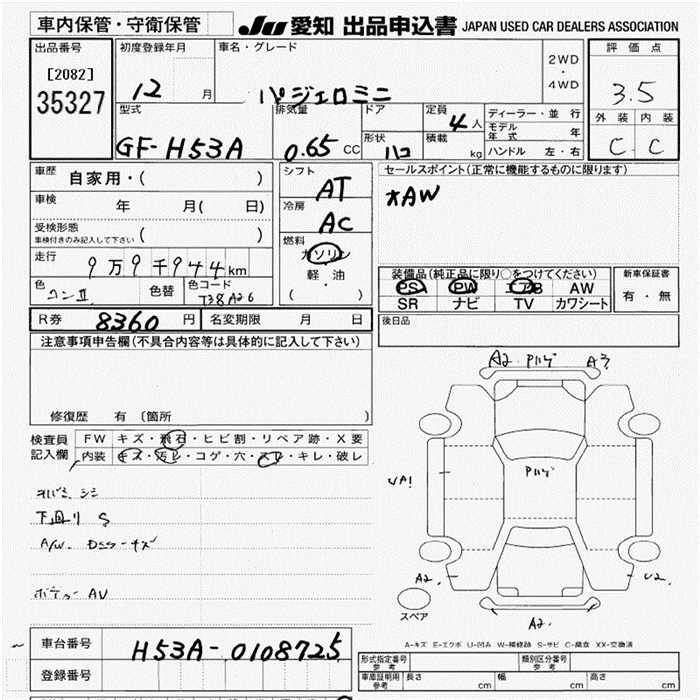 車内保管・守衛保管
JU 愛知 出品申込書 JAPAN USED CAR DEALERS ASSOCIATION
出品番号
[2082]
35327
初度登録年月
12 月
車名・グレード
パジェロミニ
2WD
・
4WD
評価点
3.5
外装 内装
C C
型式
GF-H53A
排気量
0.65 CC
ドア
形状
ハコ
定員
4人
積載
kg
ディーラー・並行
モデル年式 年
ハンドル 左・右
車歴
自家用・( )
車検
年 月( 日)
受検形態
車検付きのみ記入して下さい ( )
走行
9万9千944km
色
コンII
色替
色コード
T38A26
シフト
AT
冷房
AC
燃料
ガソリン
軽・油
( ・ )
セールスポイント(正常に機能するものに限ります)
*AW
装備品(純正品に限り○をつけてください)
PS PW エアB AW
SR ナビ TV カワシート
新車保証書
有・無
R券 8360 円
名変期限 月 日
後日品
注意事項申告欄(不具合内容等は具体的に記入して下さい)
修復歴 有(箇所 )
検査員
記入欄
FW キズ・飛石・ヒビ割・リペア跡・X要
内装 キズ・汚レ・コゲ・穴・スレ・キレ・破レ
下回り S
A/W.
ボデー AU
A2. Pハゲ A3
Pハゲ
UA1
A2.
U2.
A2.
スペア
A-キズ E-エクボ U-凹み W-補修跡 S-サビ C-腐食 XX-交換済
車台番号
H53A-0108725
登録番号
形式指定番号
参考
類別区分番号
参考
車庫証明用
参考
長さ cm 幅 cm 高さ cm